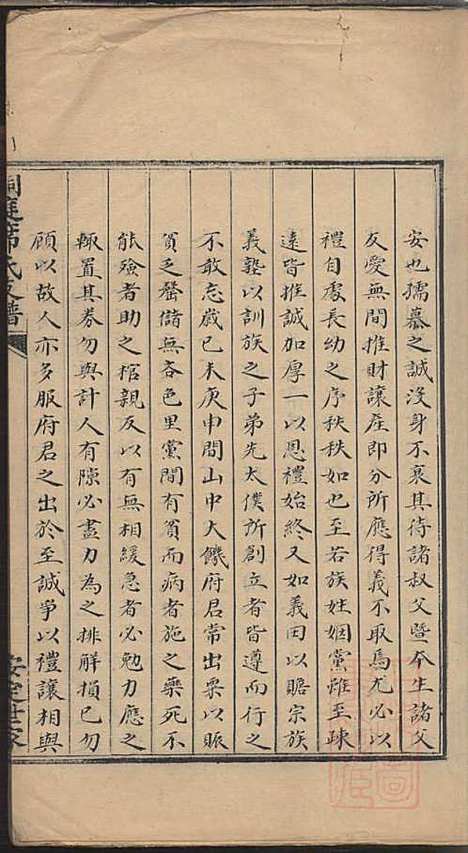 安也孺慕之誠沒身不衰其待諸叔父暨本生諸父
友愛無間推財讓產即分所應得義不取焉尤必以
禮自處長幼之序秩秩如也至若族姓婣黨雖至疎
遠皆推誠加厚一以恩禮始終又如義田以贍宗族
義塾以訓族之子弟先太僕所創立者皆遵而行之
不敢忘歲己未庚申間山中大饑府君常出粟以賑
貧乏罄儲無吝色里黨間有貧而病者施之藥死不
能殮者助之棺親友以有無相緩急者必勉力應之
輒置其券勿與計人有隙必盡力為之排解損己勿
顧以故人亦多服府君之出於至誠爭以禮讓相與
洞庭席氏支譜
安定世家